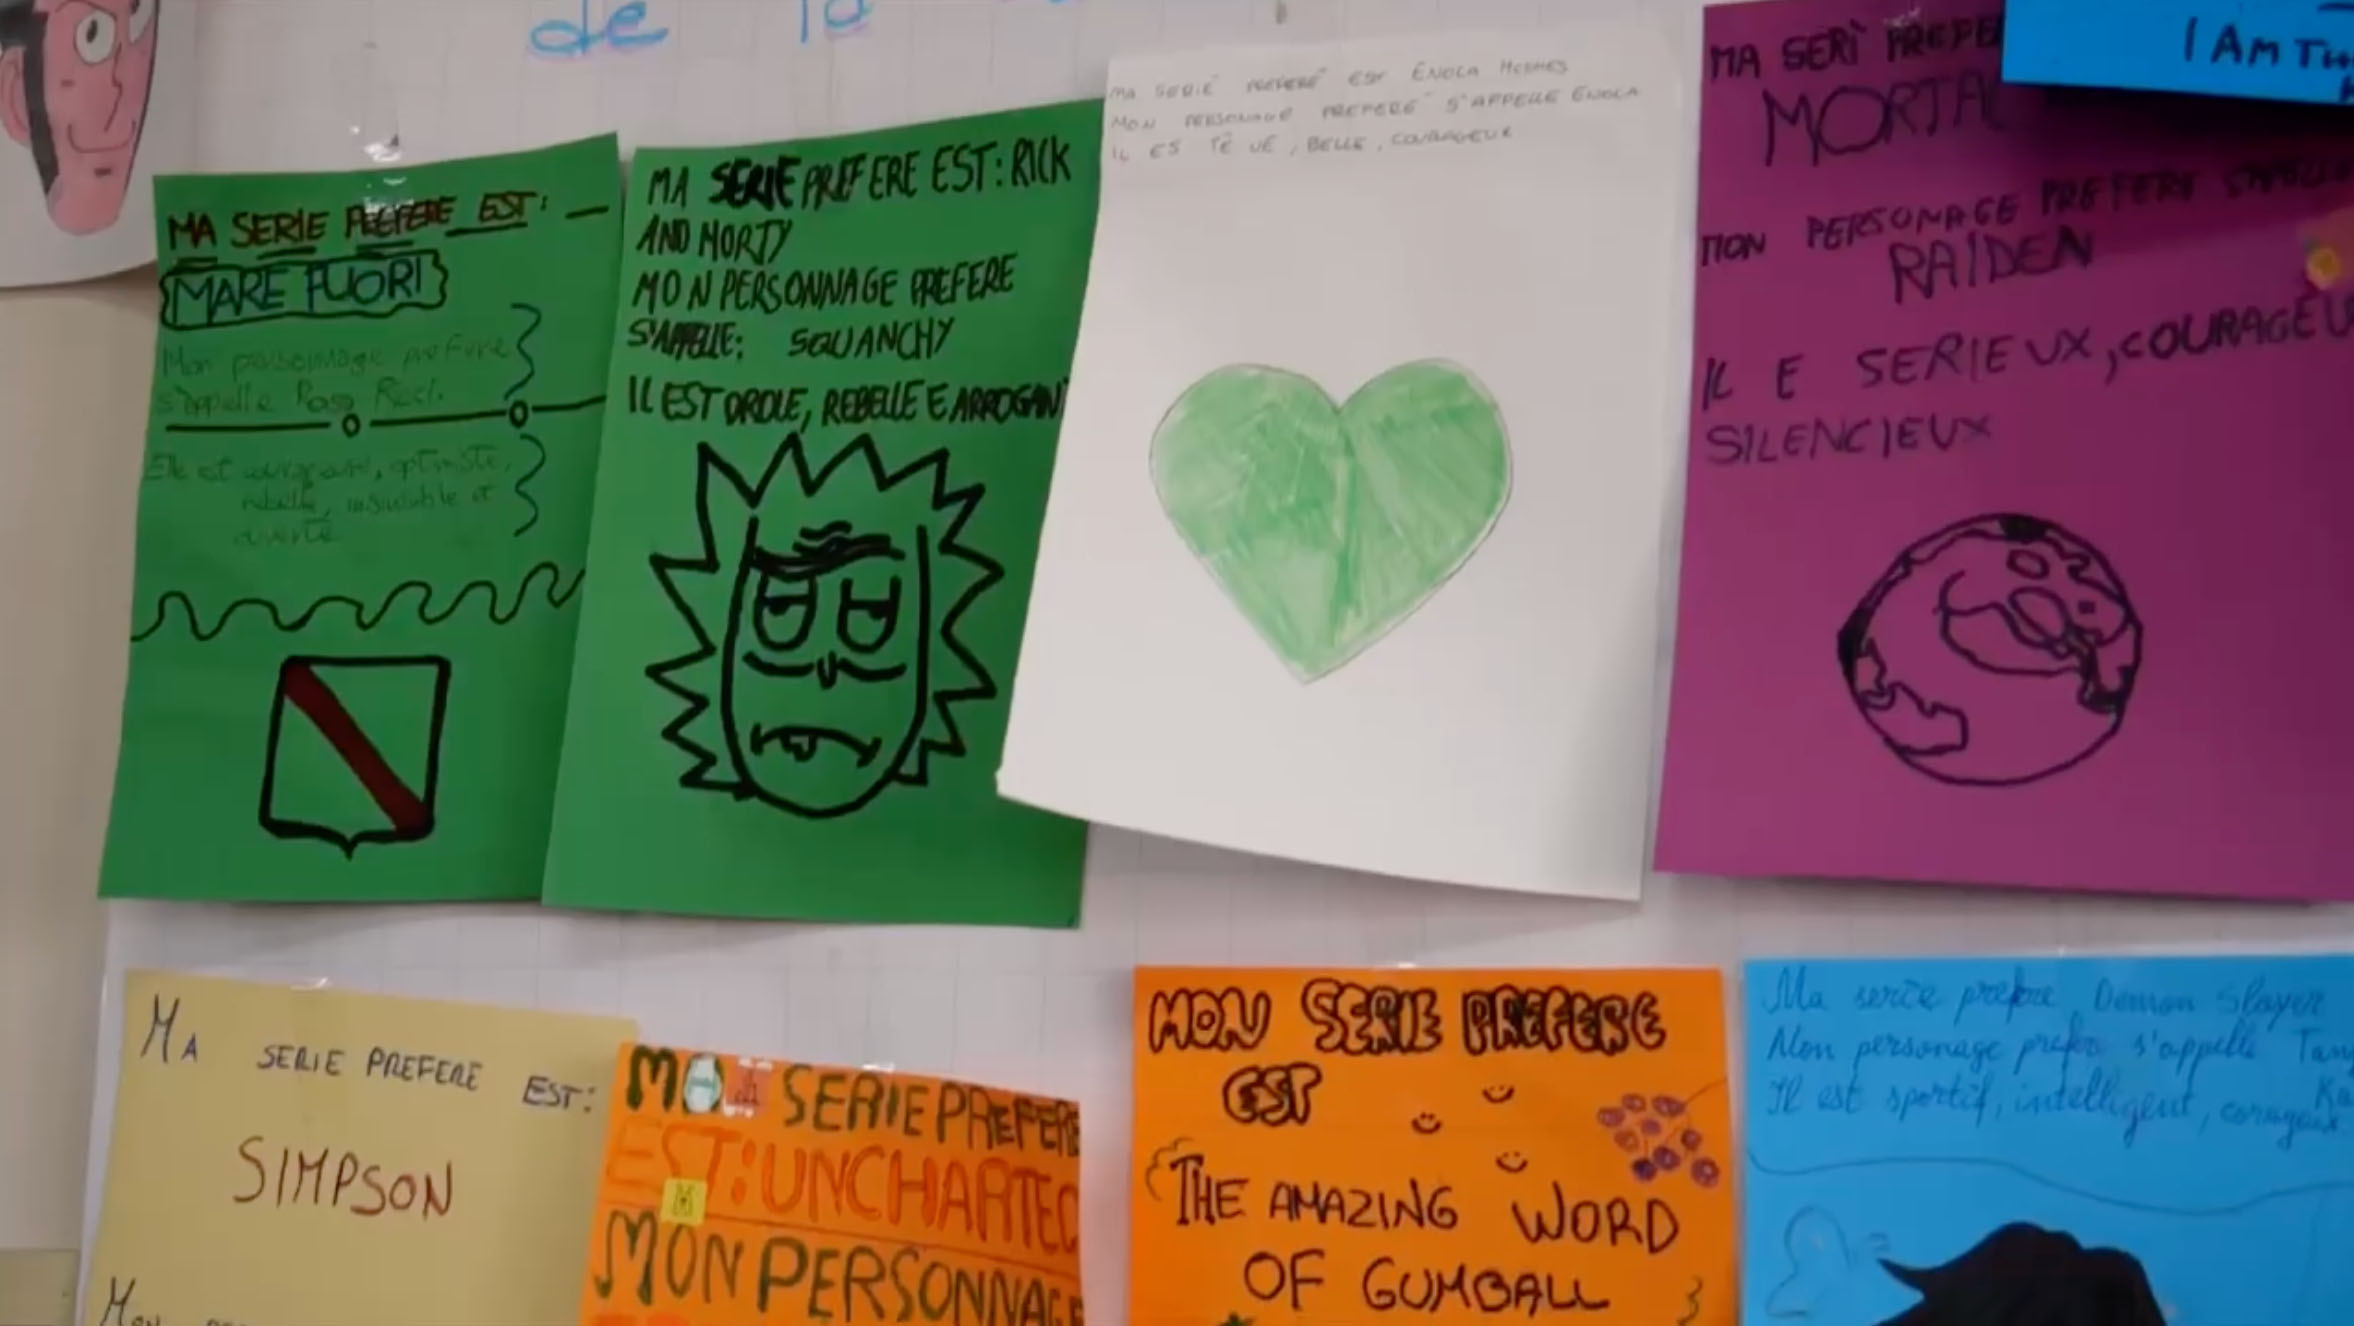 de la
MA SERIE PREFERE EST:
MARE FUORI
Mon personnage prefere
s'appelle Rosa Ricci.
Elle est courageuse, optimiste,
rebelle, et
MA SERIE PREFERE EST: RICK
AND MORTY
MON PERSONNAGE PREFERE
S'APPELLE: SQUANCHY
IL EST DROLE, REBELLE E ARROGANT
MA SERIE PREFERÉ EST ENOLA HOLMES
MON PERSONAGE PREFERE S'APPELLE ENOLA
IL ES TÊ UE, BELLE, COURAGEUR
MA SERÌ PREFE
MORTA
MON PERSONAGE PREFERE S'APPELLE
RAIDEN
IL E SERIEUX, COURAGEU
SILENCIEUX
I AM TH
MA SERIE PREFERE EST:
SIMPSON
MON
SERIE PREFERE
EST: UNCHARTED
MON PERSONNAGE
MON SERIE PREFERE
EST
THE AMAZING WORD
OF GUMBALL
Ma serie prefere Demon Slayer
Mon personage prefere s'appelle Tan
Ka
Il est sportif, intelligent, corageux.